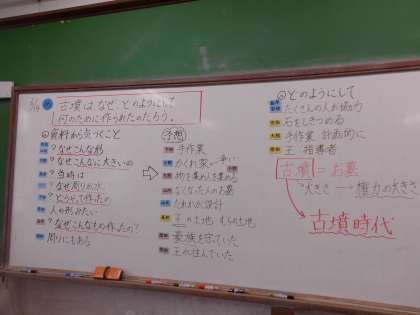 古墳は、なぜ、どのようにして
何のために作られたのだろう。
資料から気づくこと
?なぜこんな形
?なぜこんなに大きいの
?当時は
?なぜ周りが水
?どうやって作った
人の形みたい
?なぜこんなもの作ったの?
周りにもある
予想
手作業
かくれ家
物を集め人を集める
なくなった人のお墓
だれかが設計
王の土地
豪族を守っていた
王が住んでいた
どのようにして
たくさんの人が協力
石をしきつめる
手作業 計画的に
王 指導者
古墳=お墓
大きさ→権力の大きさ
古墳時代